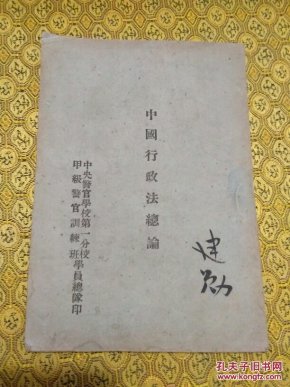 中國行政法總論
建勋
中央警官學校第一分校
甲級警官訓練班學員總隊印
孔夫子旧书网